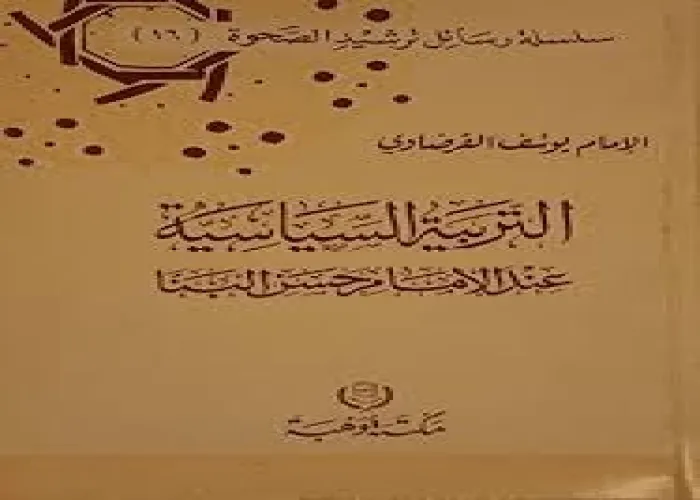 سلسلة رسائل ترشيد الصحوة (١٦)
الإمام يوسف القرضاوي
التربية السياسية
عند الإمام حسن البنا
مكتبة وهبة